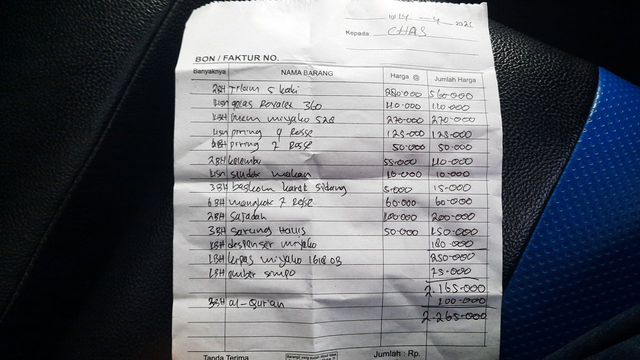 Tgl 14 - 4 2021
Kepada CHAS
BON / FAKTUR NO.
Banyaknya NAMA BARANG Harga @ Jumlah Harga
2BH Tilam 5 kaki 280.000 560.000
1LSN gelas Royalex 360 110.000 110.000
1BH miyako 528 270.000 270.000
1LSN piring 9 Rosse 125.000 125.000
piring 7 Rosse 50.000 50.000
2BH kelambu 55.000 110.000
1LSN sendok makan 10.000 10.000
3BH baskom karat sidang 5.000 15.000
6BH mangkok 7 Rose 60.000 60.000
2BH Sajadah 100.000 200.000
3BH sarung Halus 50.000 150.000
1BH despenser miyako 180.000
1BH kipas miyako 1618 GB 250.000
1BH ember simpo 75.000
2.165.000
3BH al-Qur'an 100.000
2.265.000
Tanda Terima Jumlah : Rp.